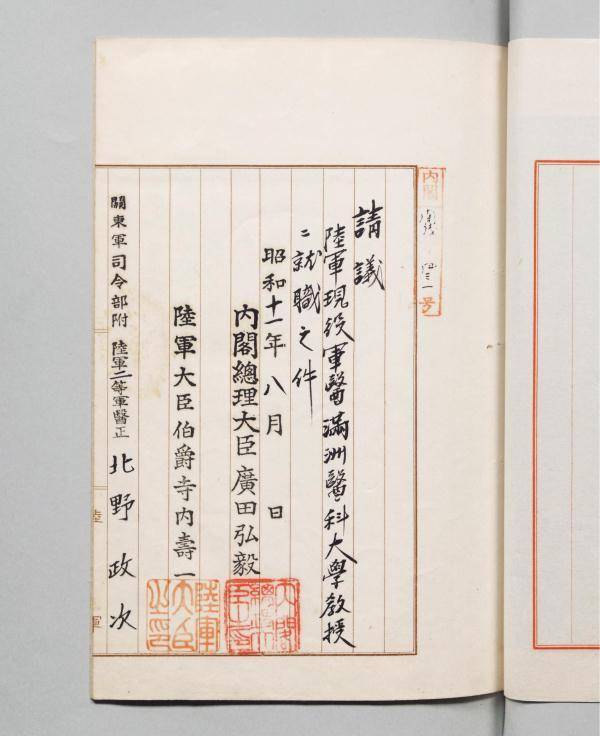 内閣
号
請議
陸軍現役軍醫滿洲醫科大學教授
ニ就職之件
昭和十一年八月　日
內閣總理大臣廣田弘毅
內閣總理大臣印
陸軍大臣伯爵寺內壽一
陸軍大臣之印
關東軍司令部附 陸軍二等軍醫正 北野政次
陸軍